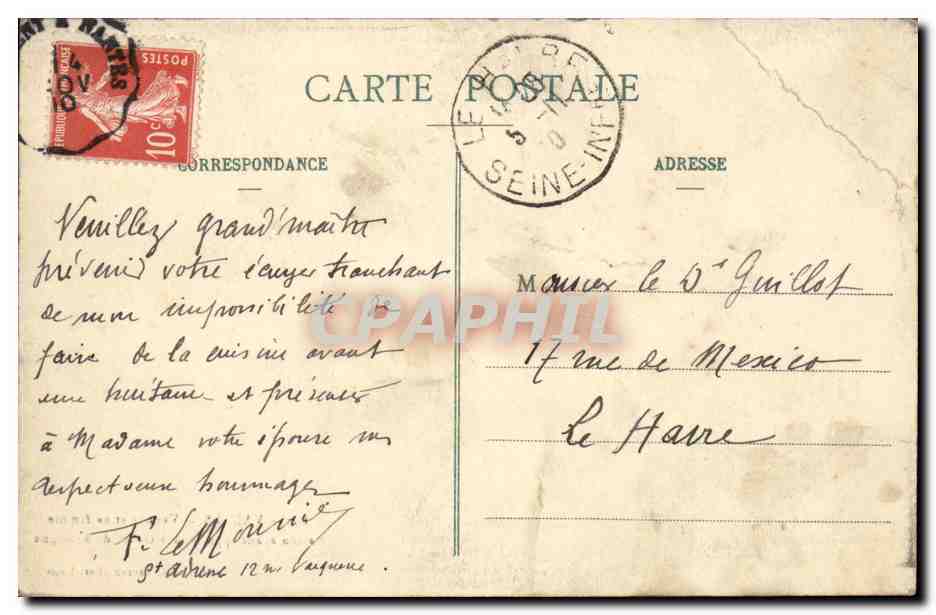 CARTE POSTALE
NANTES
POSTES
RÉPUBLIQUE FRANÇAISE
10c
LE HAVRE
5 -11
SEINE-INFRE
CORRESPONDANCE
ADRESSE
Veuillez grand'maître
prévenir votre écuyer tranchant
de mon impossibilité de
faire de la cuisine avant
une huitaine et présenter
à Madame votre épouse mes
respectueux hommages
F. Le Mounier
St Adresse 12 rue
Monsieur le Dr Guillot
17 rue de Mexico
Le Havre
CPAPHIL